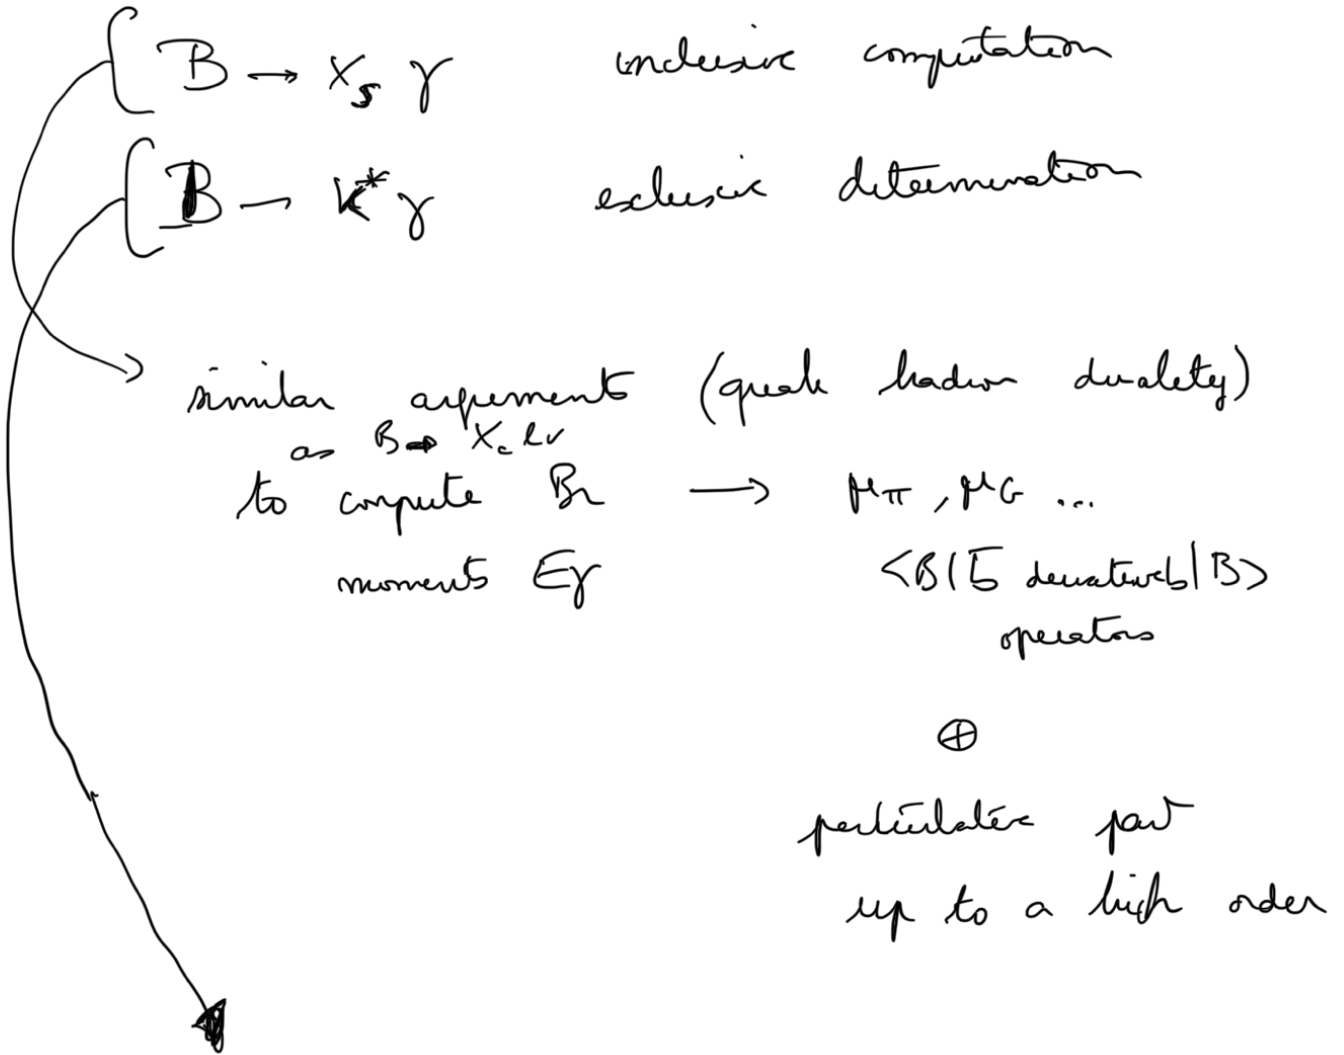 B → X_s γ inclusive computation
B — K* γ exclusive determination
similar arguments (quark hadron duality)
as B → X_c lν
to compute Br → μπ, μG ...
moments Eγ <B|b̄ derivatives b|B>
operators
⊕
perturbative part
up to a high order